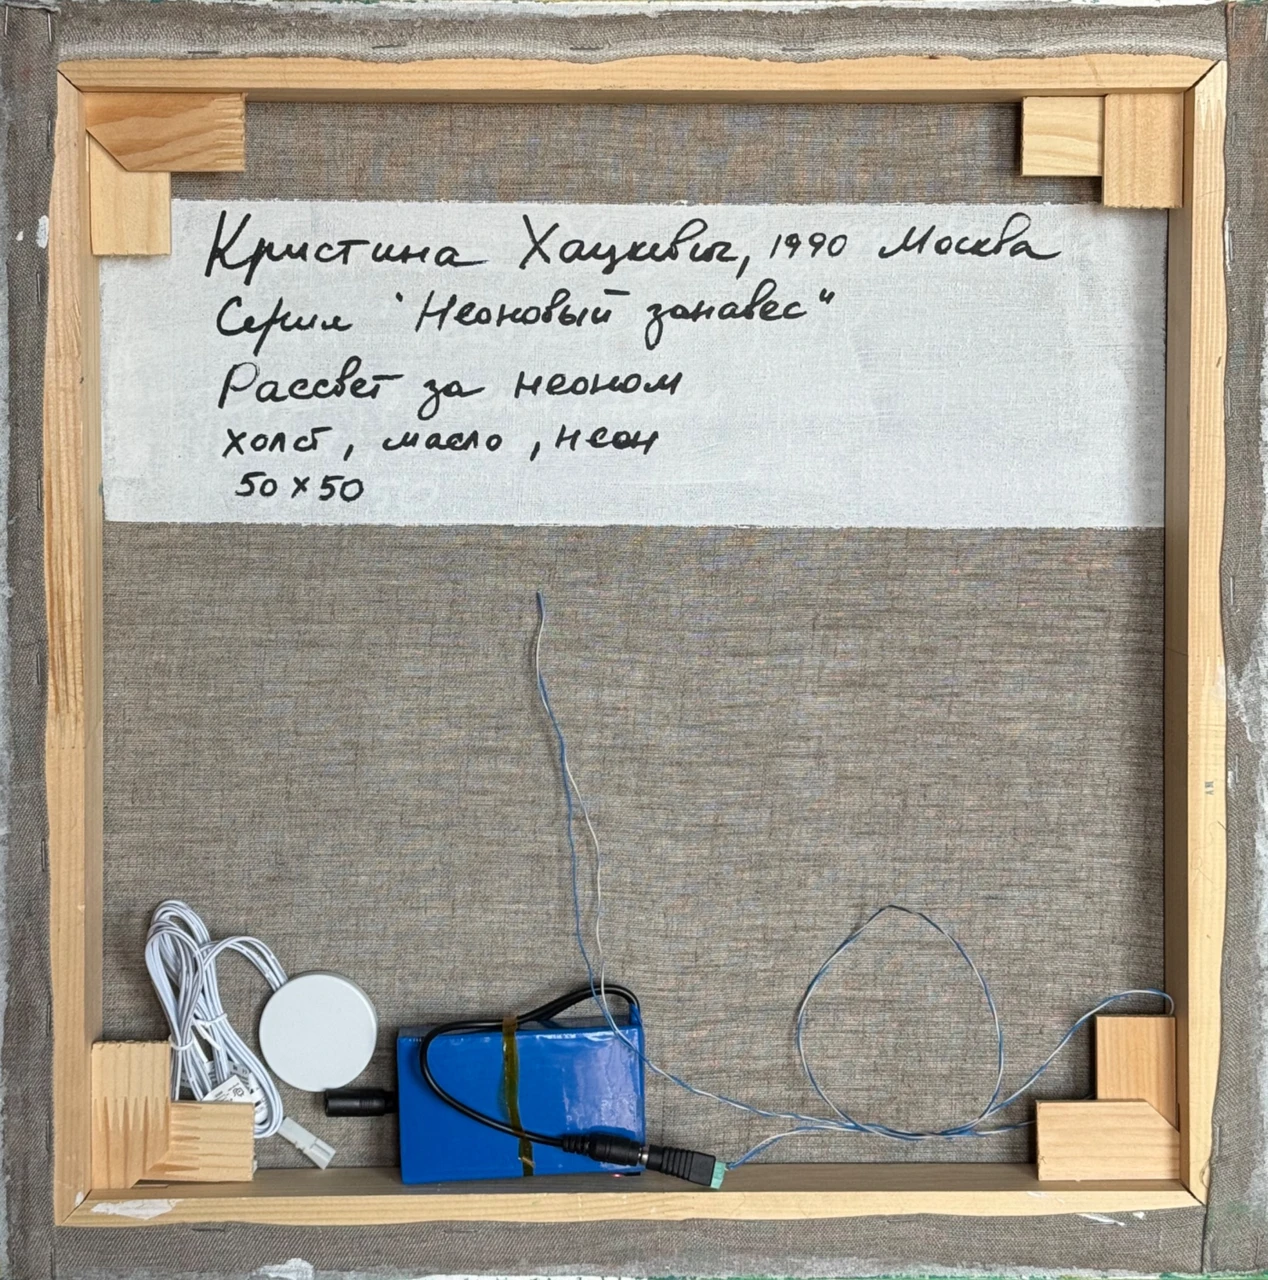 Кристина Хацкевич, 1990 Москва
Серия "Неоновый занавес"
Рассвет за неоном
холст, масло, неон
50 x 50